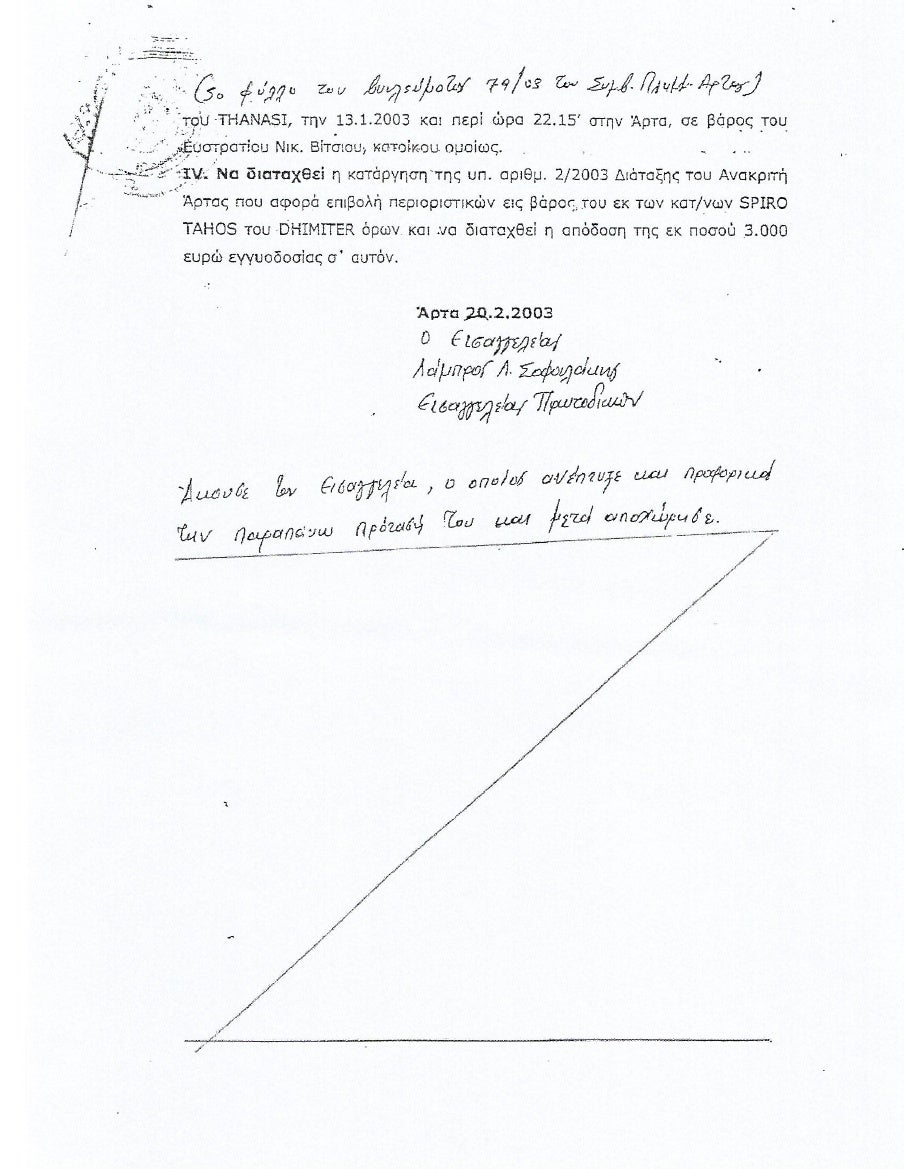 (5ο φύλλο του βουλεύματος 79/03 του Συμβ. Πλημμ. Άρτας)
του THANASI, την 13.1.2003 και περί ώρα 22.15' στην Άρτα, σε βάρος του
Ευστρατίου Νικ. Βίτσιου, κατοίκου ομοίως.
IV. Να διαταχθεί η κατάργηση της υπ. αριθμ. 2/2003 Διάταξης του Ανακριτή
Άρτας που αφορά επιβολή περιοριστικών εις βάρος του εκ των κατ/νων SPIRO
TAHOS του DHIMITER όρων και να διαταχθεί η απόδοση της εκ ποσού 3.000
ευρώ εγγυοδοσίας σ' αυτόν.
Άρτα 20.2.2003
Ο Εισαγγελέας
Λάμπρος Λ. Σοφουλάκης
Εισαγγελέας Πρωτοδικών
Άκουσε τον Εισαγγελέα, ο οποίος ανέπτυξε και προφορικά
την παραπάνω πρότασή του και μετά αποχώρησε.